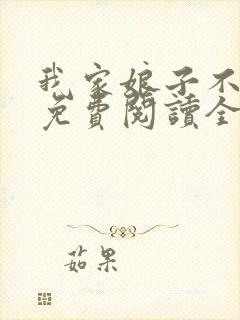 我家娘子不
免費閱讀全
茹果